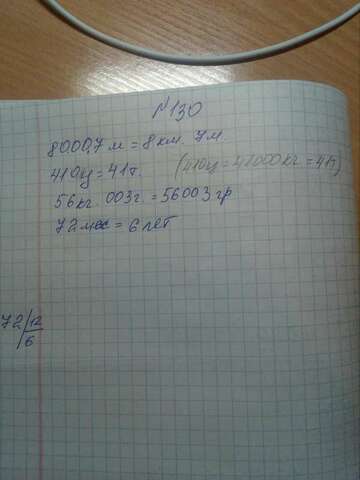 №130
8000,7 м = 8 км. 7 м.
410ц = 41т. (410ц = 41000кг = 41т)
56кг. 003г. = 56003 гр
72 мес = 6 лет
72/12
6